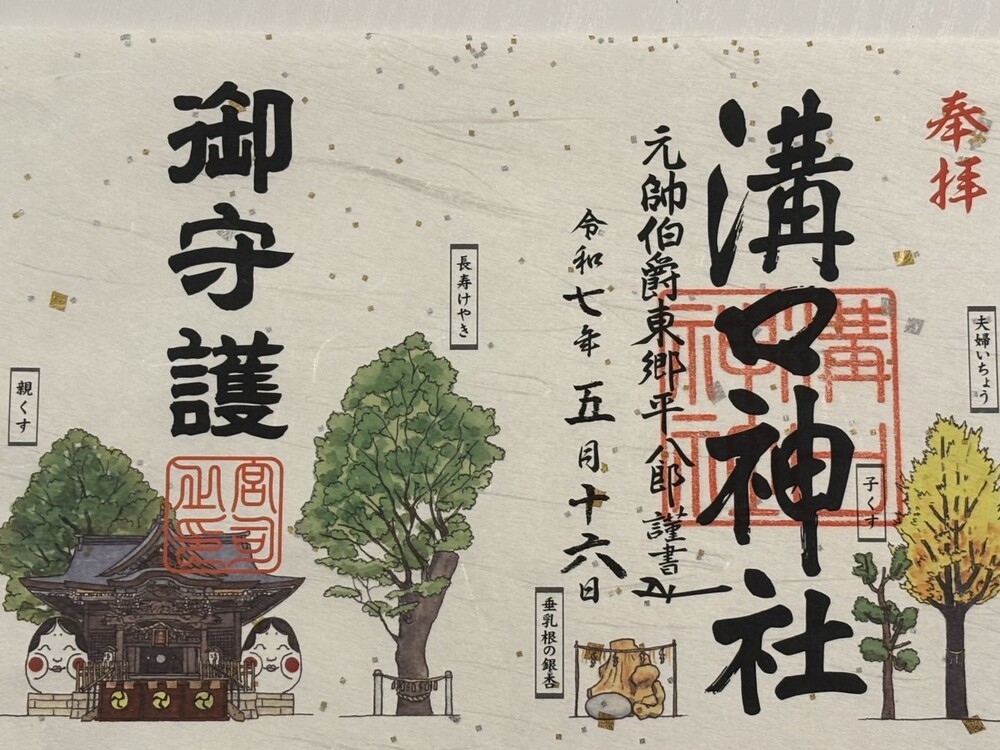 奉拝
夫婦いちょう
溝口神社
子くす
元帥伯爵東郷平八郎謹書
令和七年五月十六日
垂乳根の銀杏
長寿けやき
御守護
宮司之印
親くす